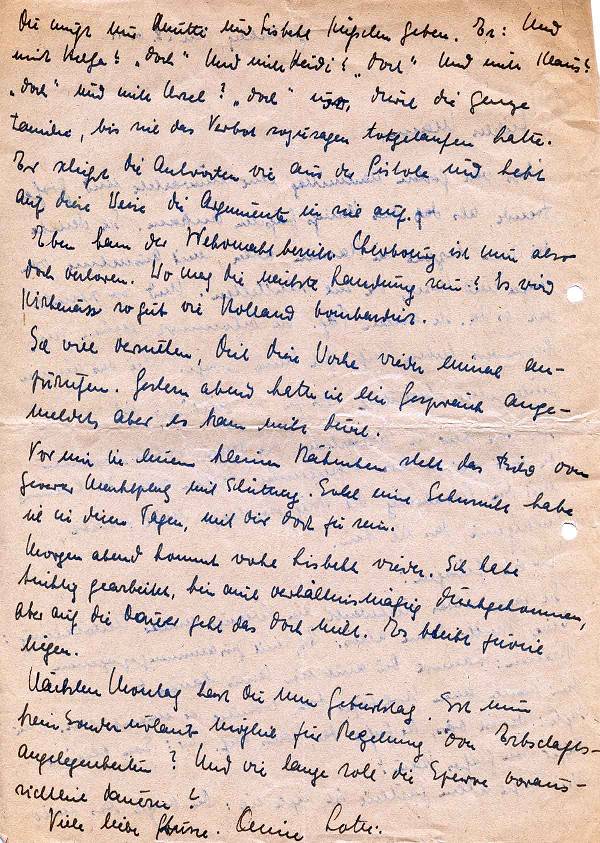 Du mußt nur Mutti und Lisbeth Küßchen geben. Er: Und
mit Helga? "doch" Und mit Heidi? "doch" Und mit Klaus?
"doch" und mit Ursel? "doch" usw, durch die ganze
Familie, bis sie das Verbot sozusagen totgelaufen hatte.
Er schießt die Antworten wie aus der Pistole und hebt
auf diese Weise die Argumente in sie auf.
Eben kam der Wehrmachtbericht. Cherbourg ist nun also
doch verloren. Wo mag die nächste Landung sein? Es wird
so gut wie Holland bombardiert.
Ich will versuchen, Dich diese Woche wieder einmal an-
zurufen. Gestern abend hatte ich ein Gespräch ange-
meldet, aber es kam nicht durch.
Vor mir in einem kleinen steht das Bild von
mit. Solche eine Sehnsucht habe
ich in diesen Tagen, mit dir dort zu sein.
Morgen abend kommt Lisbeth wieder. Ich habe
tüchtig gearbeitet, bin auch verhältnismäßig durchgekommen,
aber auf die Dauer geht das doch nicht. Es bleibt zuviel
liegen.
Nächsten Montag hast Du nun Geburtstag. Ist nun
kein Sonderurlaub möglich für Regelung von Erbschafts-
angelegenheiten? Und wie lange soll die Sperre voraus-
sichtlich dauern?
Viele liebe Grüsse. Deine Lotte.